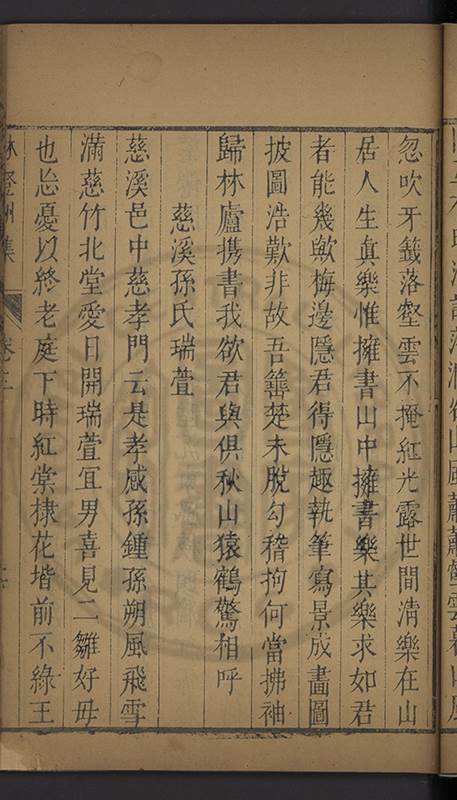 忽吹牙籤落壑雲不掩紅光露世間清樂在山
居人生真樂惟擁書山中擁書樂其樂求如君
者能幾歟梅邊隱君得隱趣執筆寫景成畫圖
披圖浩歎非故吾籓楚未脫勾稽拘何當拂袖
歸林廬携書我欲君與俱秋山猿鶴驚相呼
慈溪孫氏瑞萱
慈溪邑中慈孝門云是孝感孫鍾孫朔風飛雪
滿慈竹北堂愛日開瑞萱宜男喜見二雛好毋
也忘憂以終老庭下時紅棠棣花堦前不綠王
集
卷三